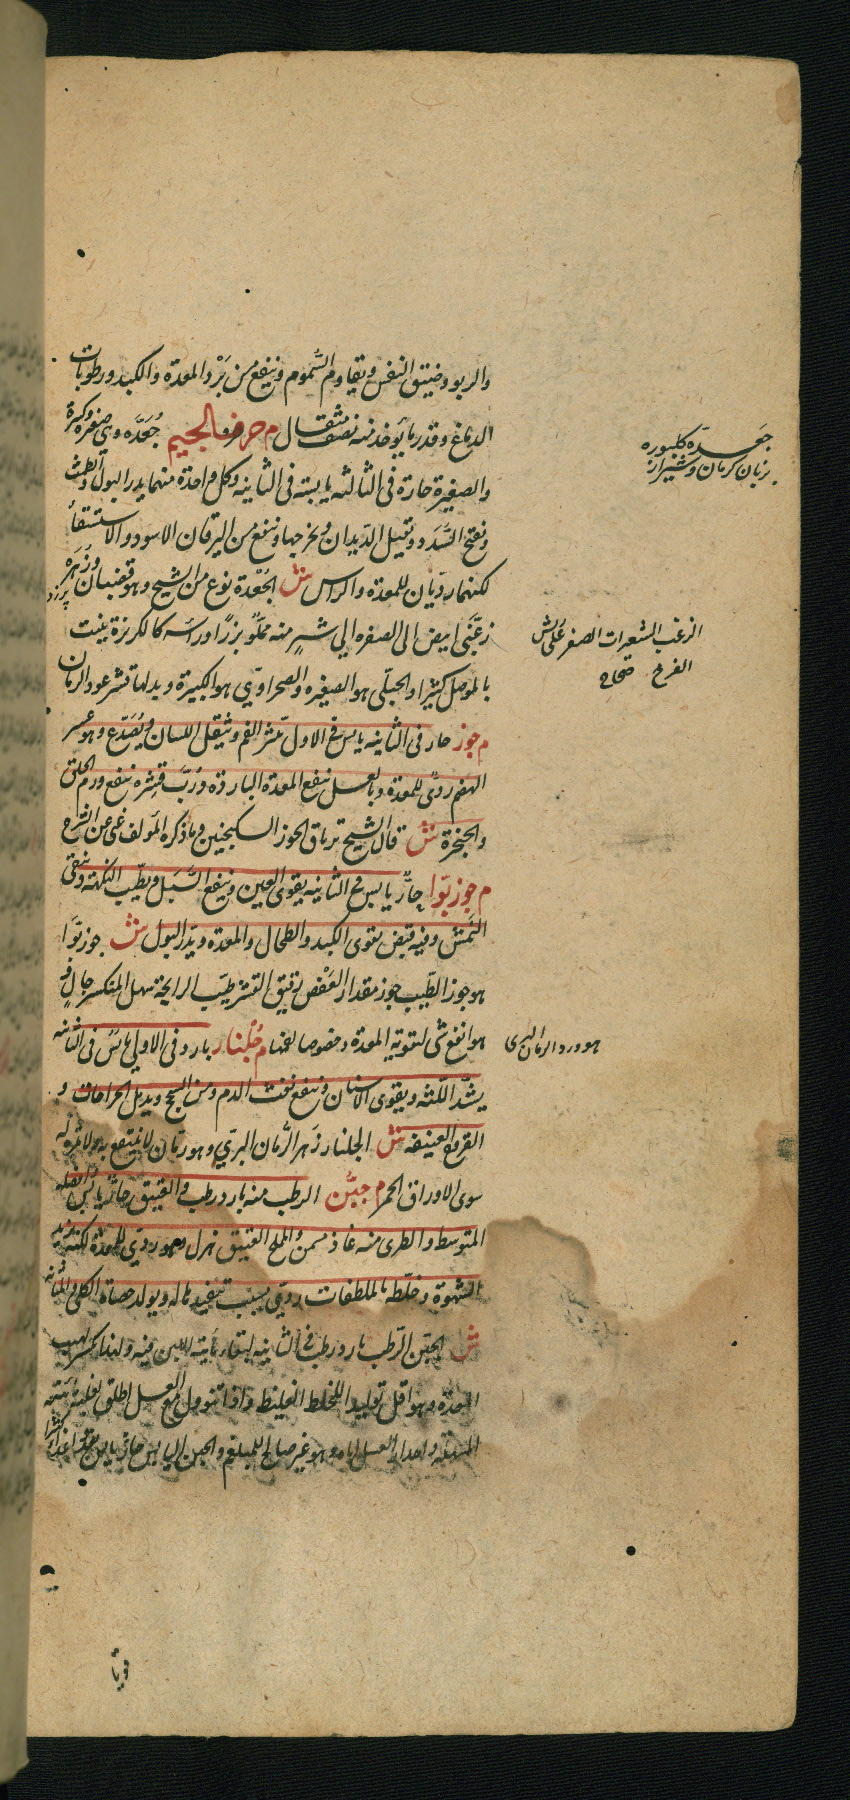 والربو وضيق النفس ويقاوم السُّموم وينفع من بَرْد المعدة والكبد ورطوبات
الدماغ وقدر ما يؤخذ منه نصف مثقال م حرف الجيم جُعَدَّه وهي صغيرة وكبيرة
والصغيرة حارة في الثالثه يابسة في الثانيه وكل واحدة منهما يدر البول والطمث
وتفتح السُّدَد ويقتل الديدان ويخرجها وينفع من اليرقان الاسود والاستسقا
لكنهما رديان للمعدة والراس ش الجُعْدة نوع من الشيح وهو قضبان وزَهره
زغَبَى ابيض الى الصفره الي شبر منه مملُوّ بزرًا وراسه كالكرزة ينبت
بالموصل كثيرا والجبلّى هو الصغيره والصحراوي هو الكبيرة وبدلها قشر عود الرمان
م جوز حار في الثانيه يابس في الاول يبثر الفم ويثقل اللسان ويُصَدّع وهو عسر
الهضم ردىّ للمعدة وبالعسل ينفع المعدة الباردة ورُبّ قِشره ينفع ورم الحلق
والحنجرة ش قال الشيخ ترياق الجوز السكنجبين وما ذكره المؤلف غنى عن الشرح
م جوز بَوَا حارّ يابس في الثانيه يقوى العين وينفع السَّبَل ويطيّب النكهة وينقى
النَّمش وفيه قبض يقوى الكبد والطحال والمعدة ويدر البول ش جوز بَوَّا
هو جوز الطيب جوز مقدار العَفْص رقيق القشر طيب الرايحة سهل المنكسر حال و
هو انفع شى لتقوية المعدة وخصوصا لفمها م جُلْنار بارد في الاولي يابس في الثانيه
يشدّ اللّثه ويقوى الاسنان وينفع نفث الدم ومن السحج ويدمل الجراحات و
القروح العتيقه ش الجلنار زهر الرُّمان البريّ وهو رمّان لا ينتفع به ولا ثمرة له
سوى الاوراق الحمر م جبُن الرطب منه بارد رطب والعتيق حارّ يابس وافضله
المتوسط والطرى منه غاذ مسمن والملح العتيق نهزل وهو ردىّ للمعدة لكنه يزيد
الشهوة وخلّطه بالملطفات ردي بسبب تنفيذها له ويولد حصاة الكلى والمثانه
ش الجبّن الرّطب بارد رطب في الثانيه لبقا مائية اللبن فيه ولهذا يكسر لهيب
المعدة وهو اقل توليدا للخلط الغليظ واذا تنوول مع العسل اطلق لغلبة مائيته
المسهلة واحدار العسل اياه وهو غير صالح للمبلغم والجبن اليابس حار يابس
جعَدّه كلپوره
بزبان كرمان وشيراز
الزغب الشعيرات الصفر على ريش
الفرخ صحاح
هو ورد الرمان البرى